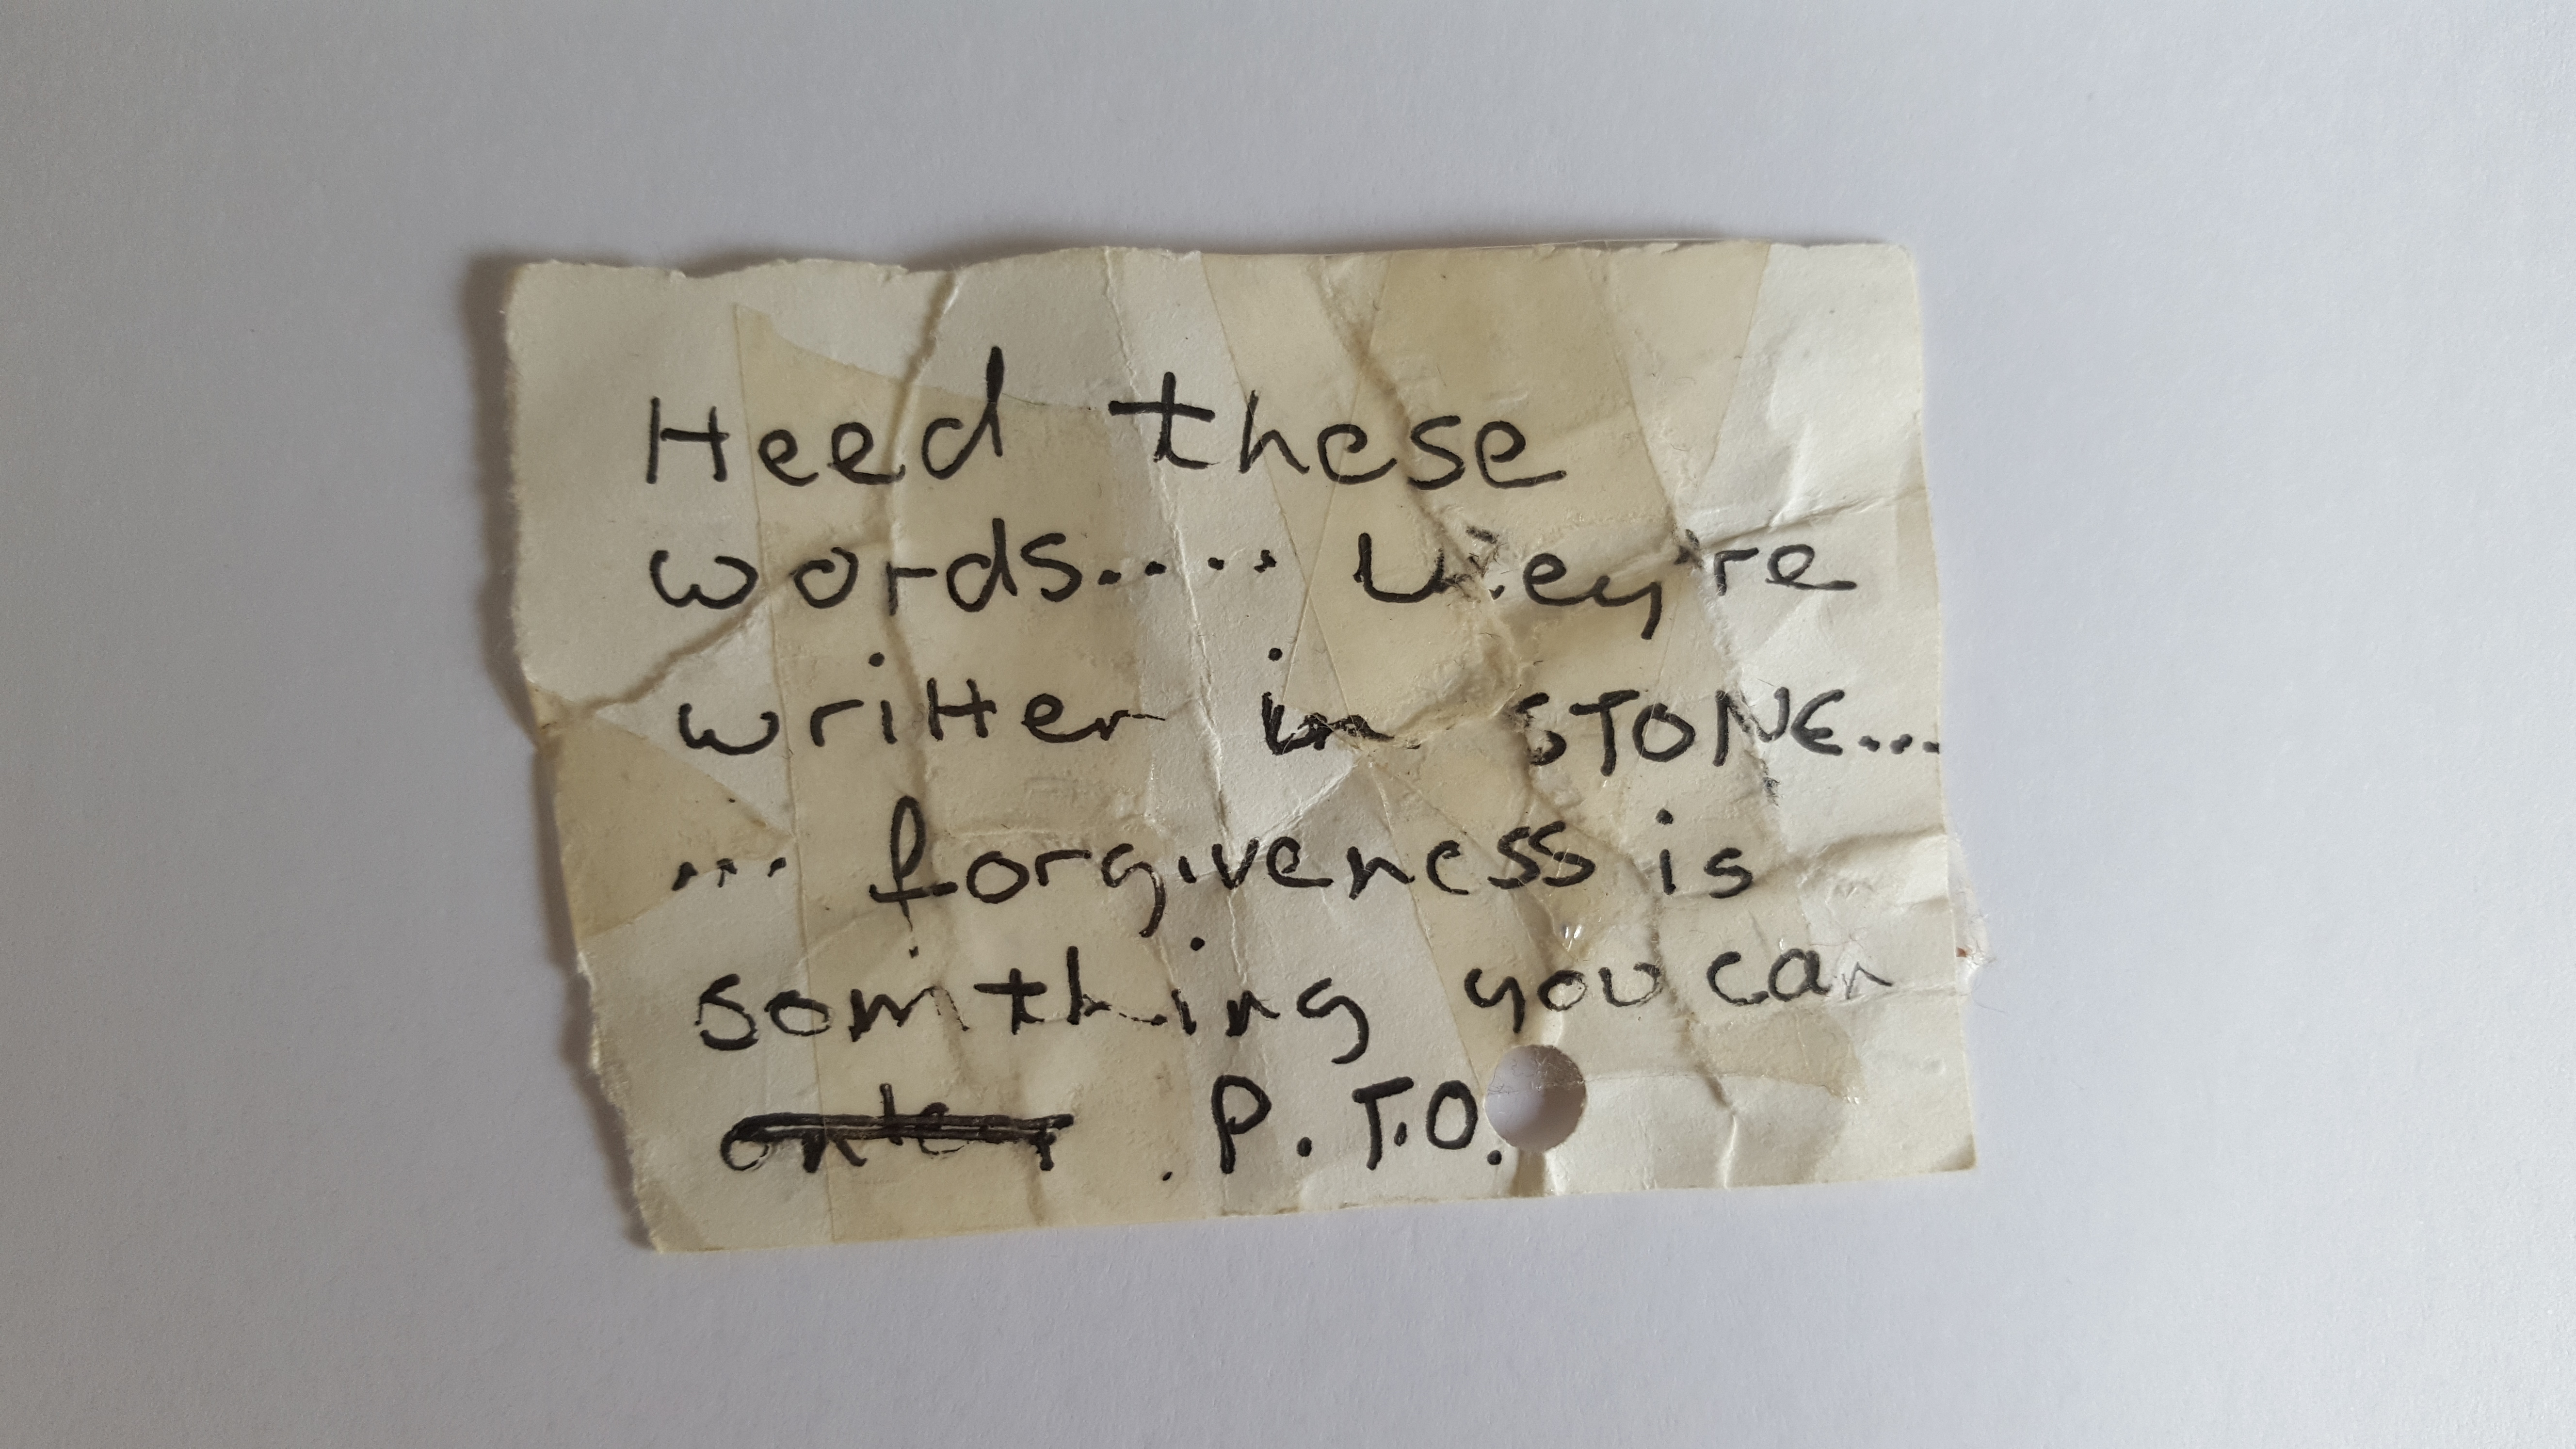 Heed these
words..... they're
written in STONE...
... forgiveness is
somithing you can
P.T.O.